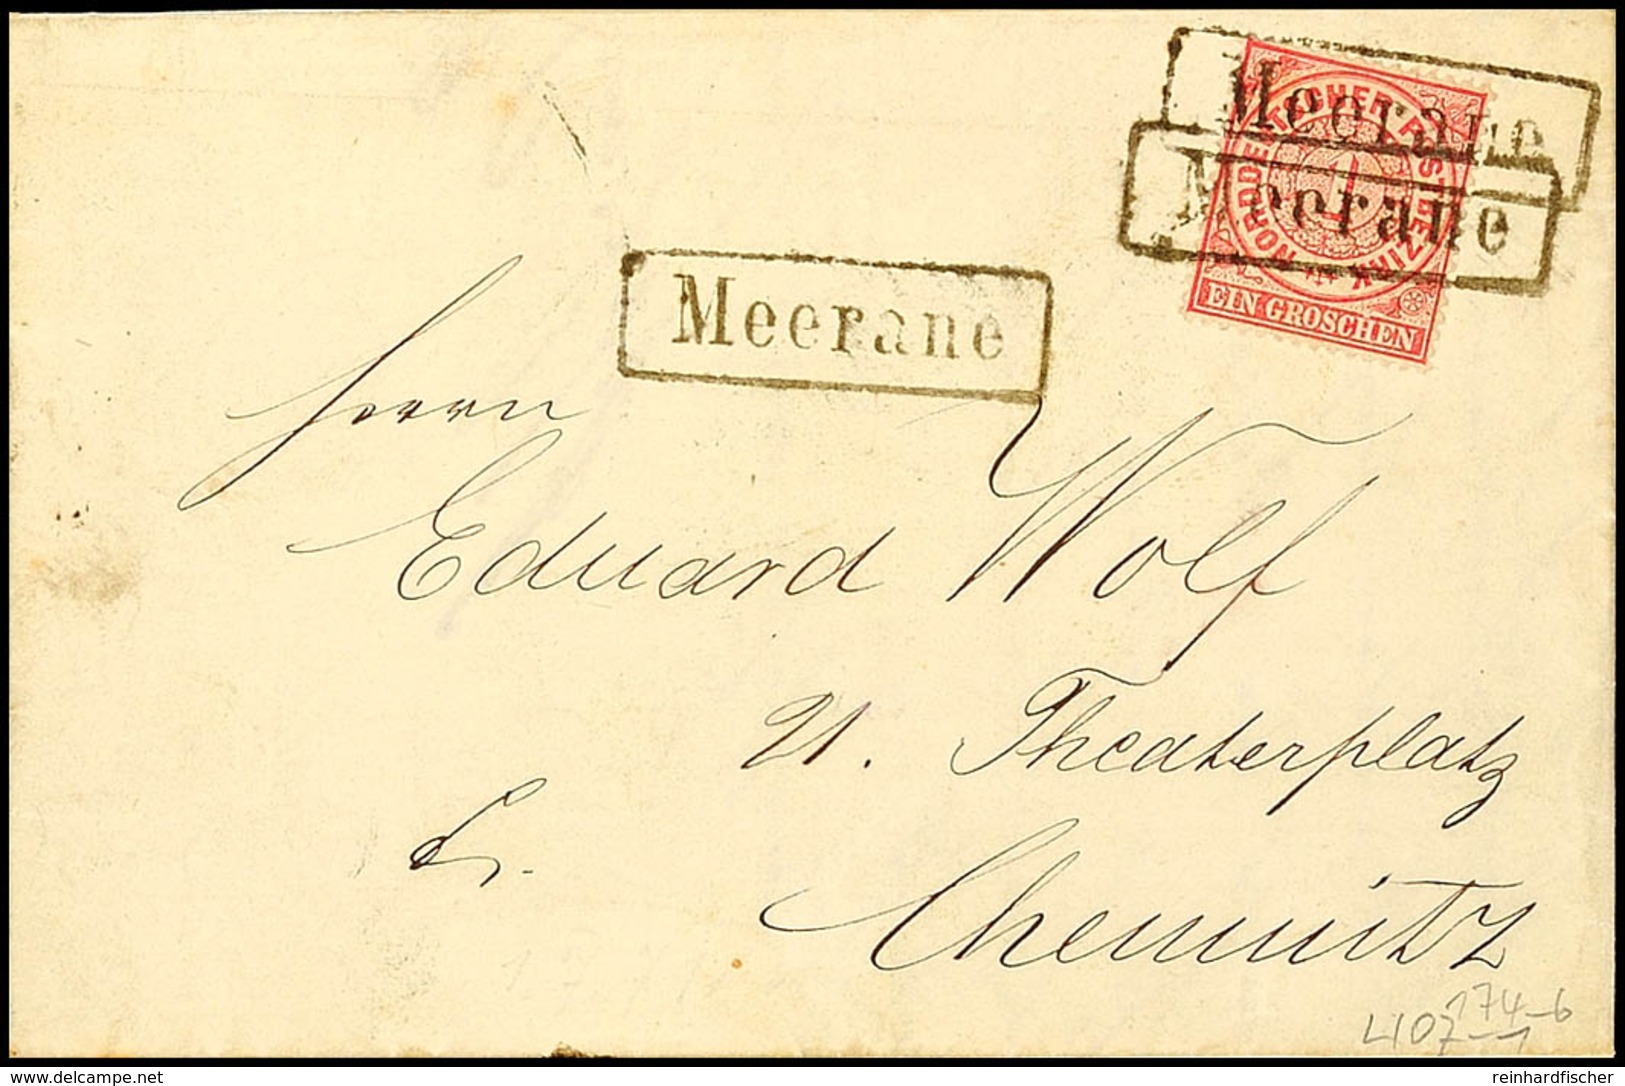 Meerane
Meerane
NORDDEUTSCHER POSTBEZIRK
1
EIN GROSCHEN
Meerane
Herrn
Eduard Wolf
21. Theaterplatz
Chemnitz
174-6
www.delcampe.net
reinhardfischer